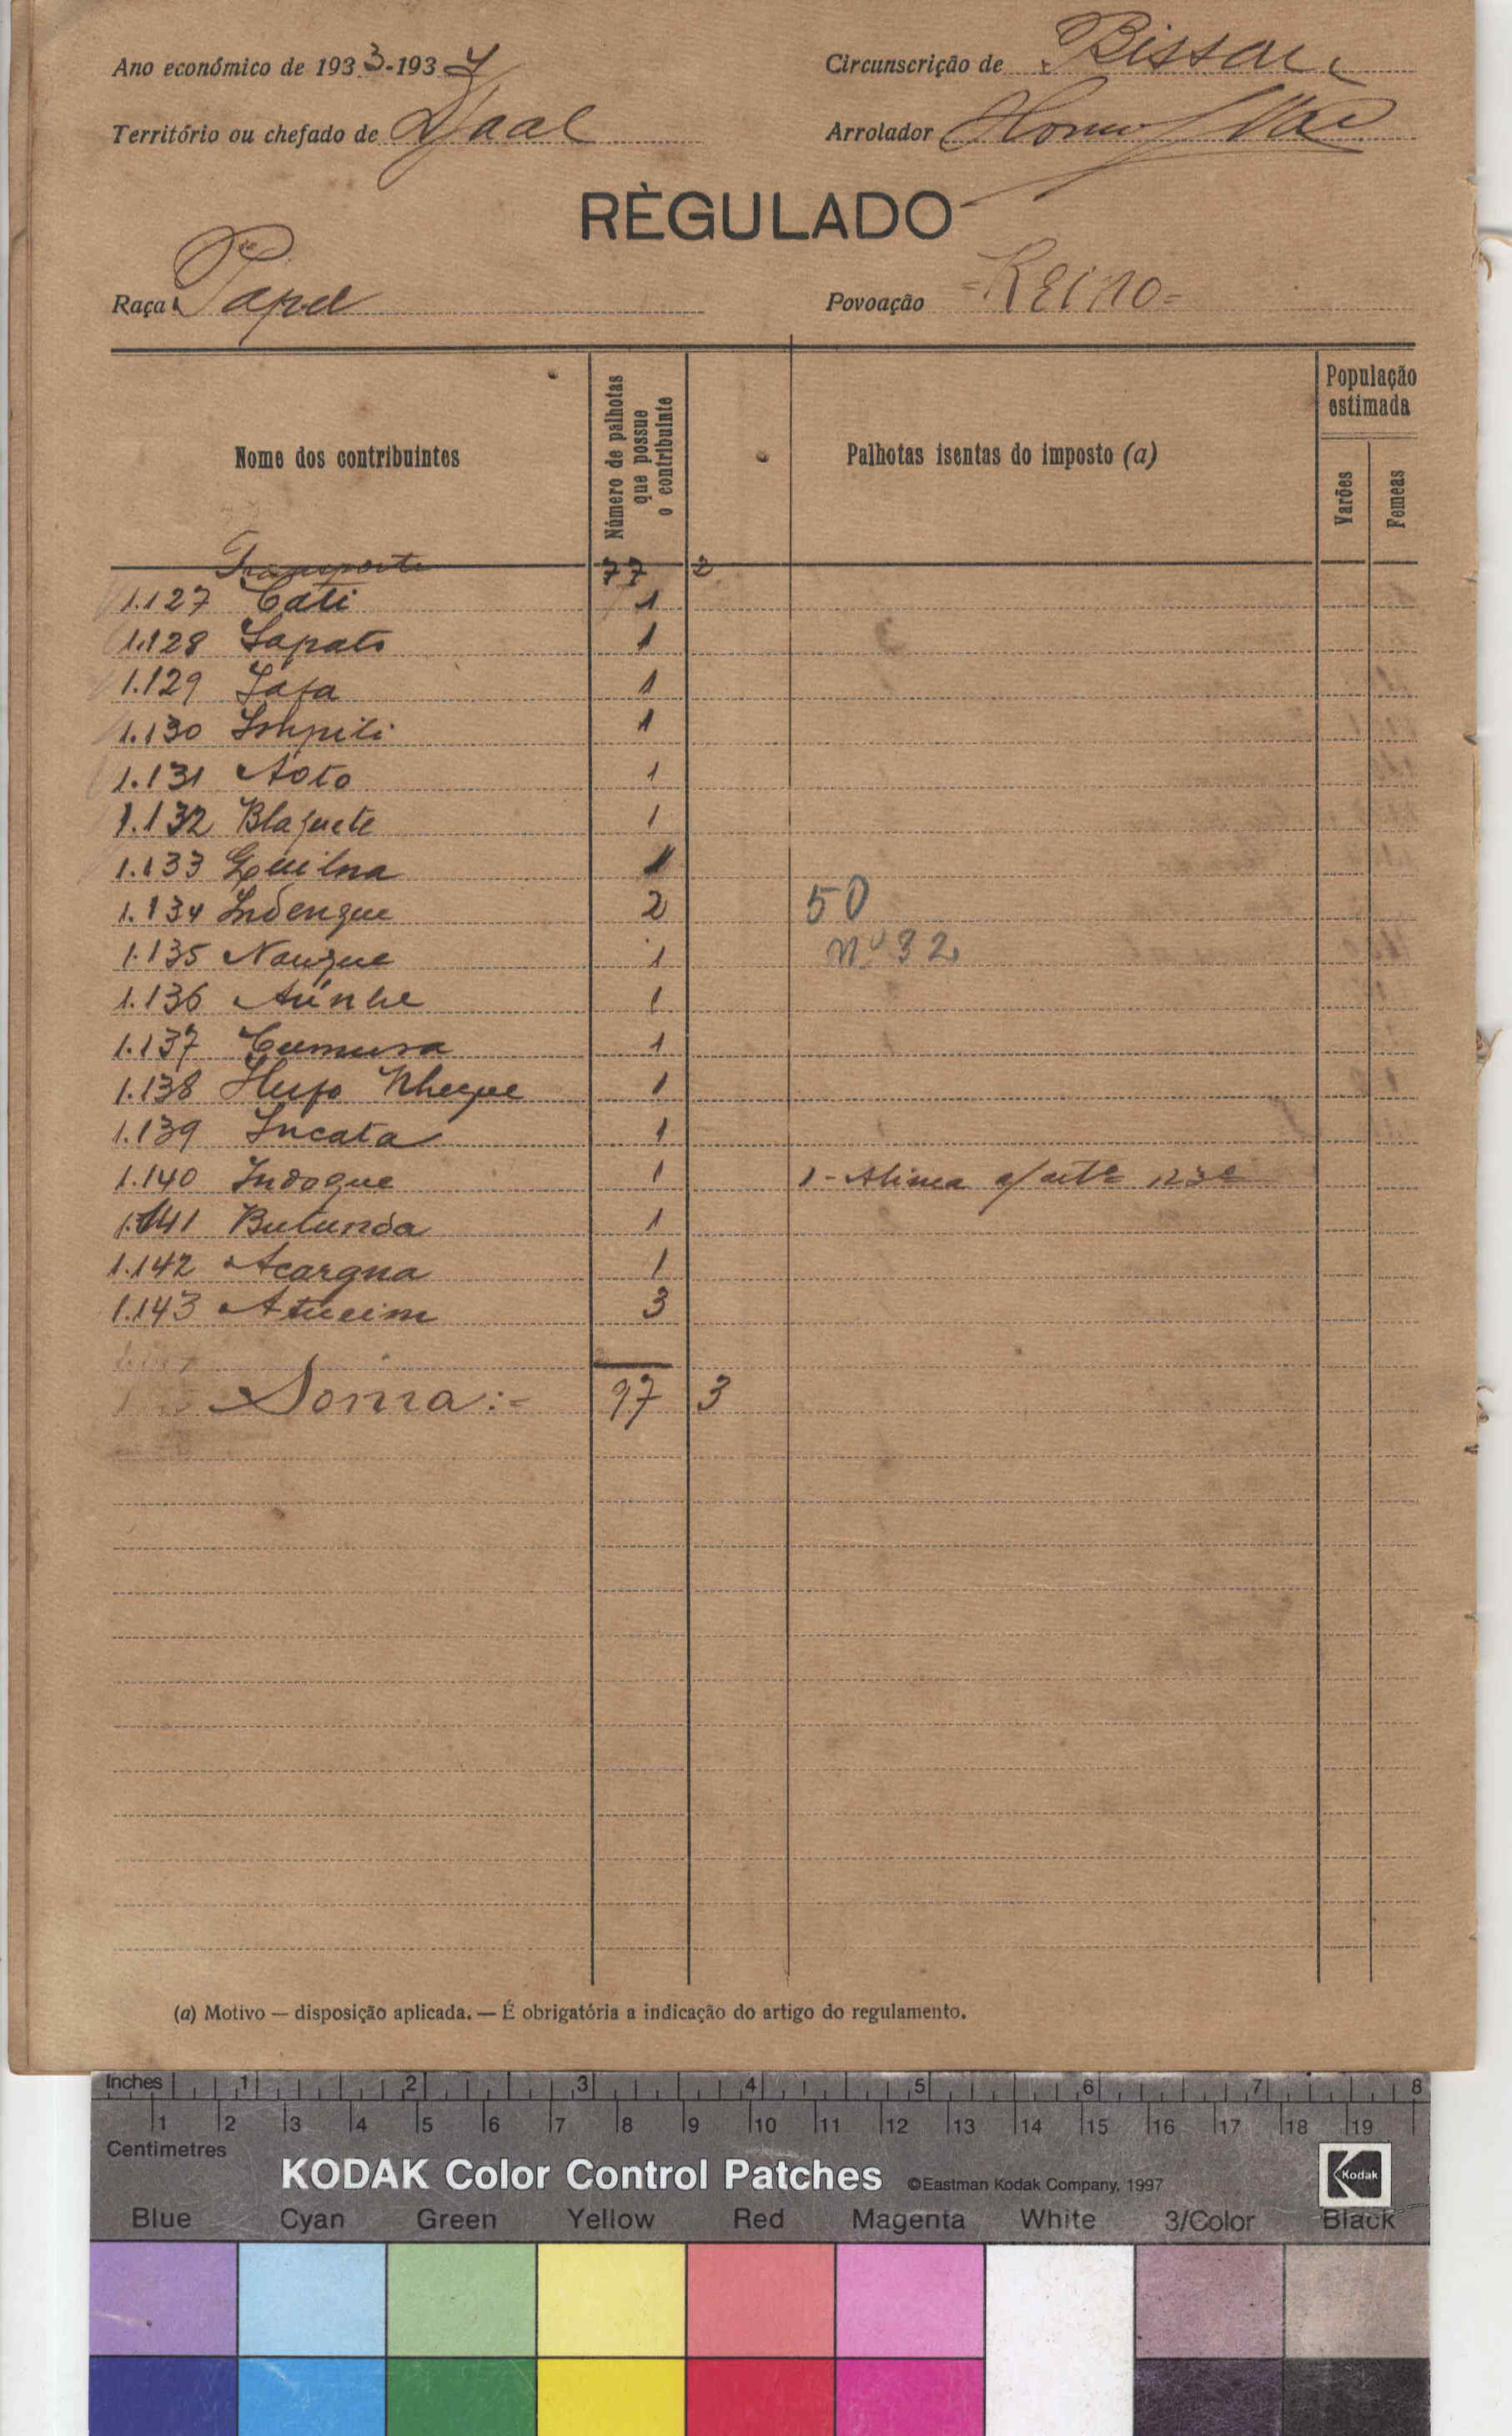 Ano económico de 1933-1934
Circunscrição de Bissau
Território ou chefado de
Arrolador
RÈGULADO
Raça Papel
Povoação =Reino=
Nome dos contribuintes
Número de palhotas que possue o contribuinte
Palhotas isentas do imposto (a)
População estimada
Varões
Femeas
Transporte 77 2
1.127 Cati 1
1.128 Sapato 1
1.129 1
1.130 1
1.131 Aoto 1
1.132 1
1.133 Quilna 1
1.134 Indengue 2 50
1.135 Nanque 1 nº 32
1.136 Aúnhe 1
1.137 Cumura 1
1.138 1
1.139 Incata 1
1.140 Indoque 1 1 - Alinea
1.141 Butunda 1
1.142 Acargna 1
1.143 3
Soma:- 97 3
(a) Motivo — disposição aplicada. — É obrigatória a indicação do artigo do regulamento.
Inches 1 2 3 4 5 6 7 8
1 2 3 4 5 6 7 8 9 10 11 12 13 14 15 16 17 18 19
Centimetres
KODAK Color Control Patches ©Eastman Kodak Company, 1997 Kodak
Blue Cyan Green Yellow Red Magenta White 3/Color Black